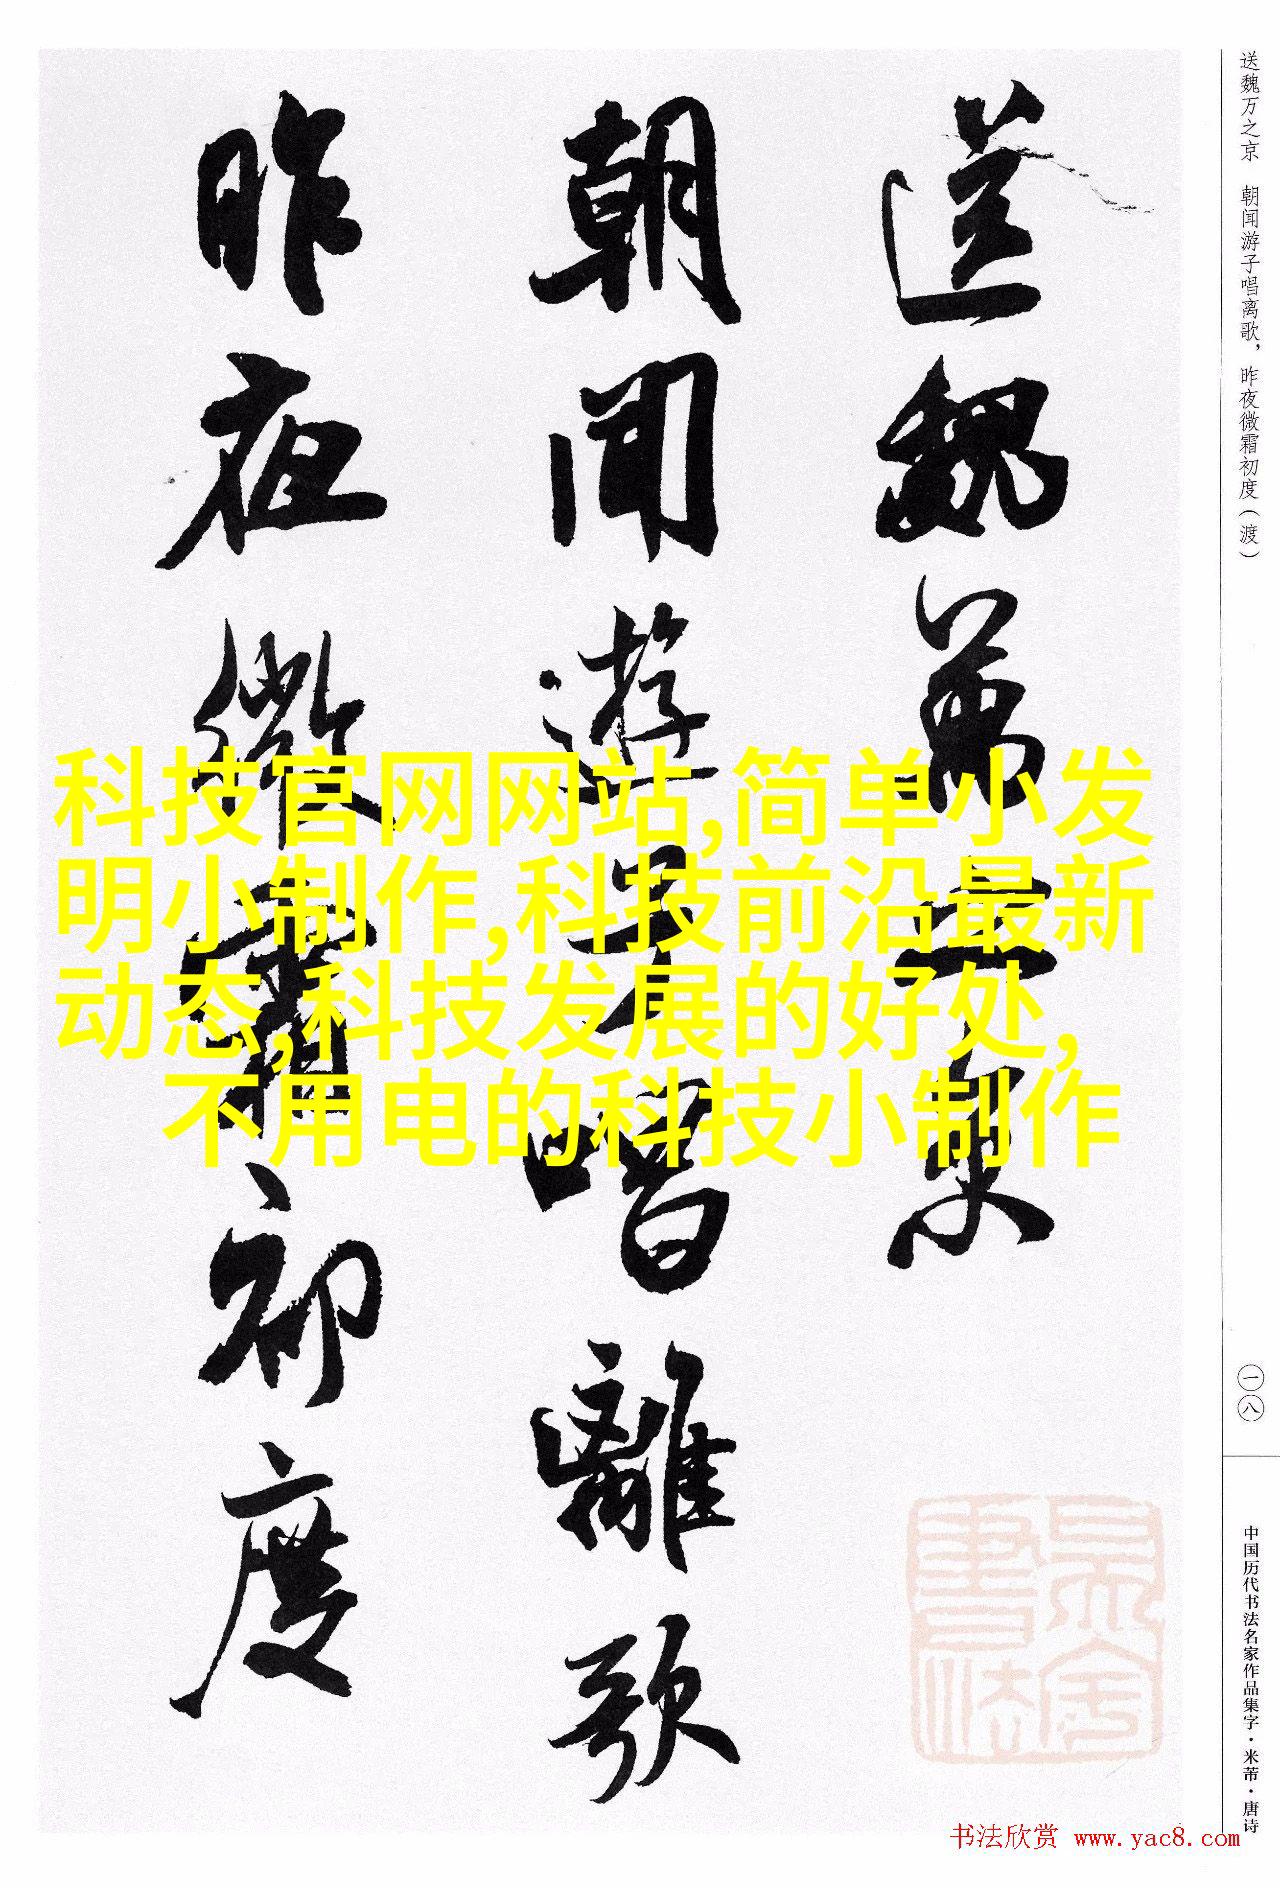 送魏萬之京
朝聞遊子唱離歌
昨夜微霜初度
送魏万之京　朝闻游子唱离歌，昨夜微霜初度（渡）
一八
中国历代书法名家作品集字·米芾·唐诗
科技官网网站,简单小发
明小制作,科技前沿最新
动态,科技发展的好处,
不用电的科技小制作
书法欣赏 www.yac8.com